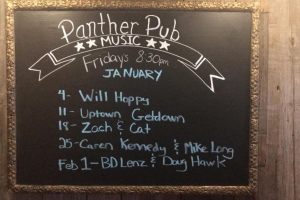 Panther Pub
MUSIC
Fridays 8:30pm
JANUARY
4- Will Hoppy
11- Uptown Getdown
18- Zach & Cat
25- Caren Kennedy & Mike Long
Feb 1- BD Lenz & Doug Hawk